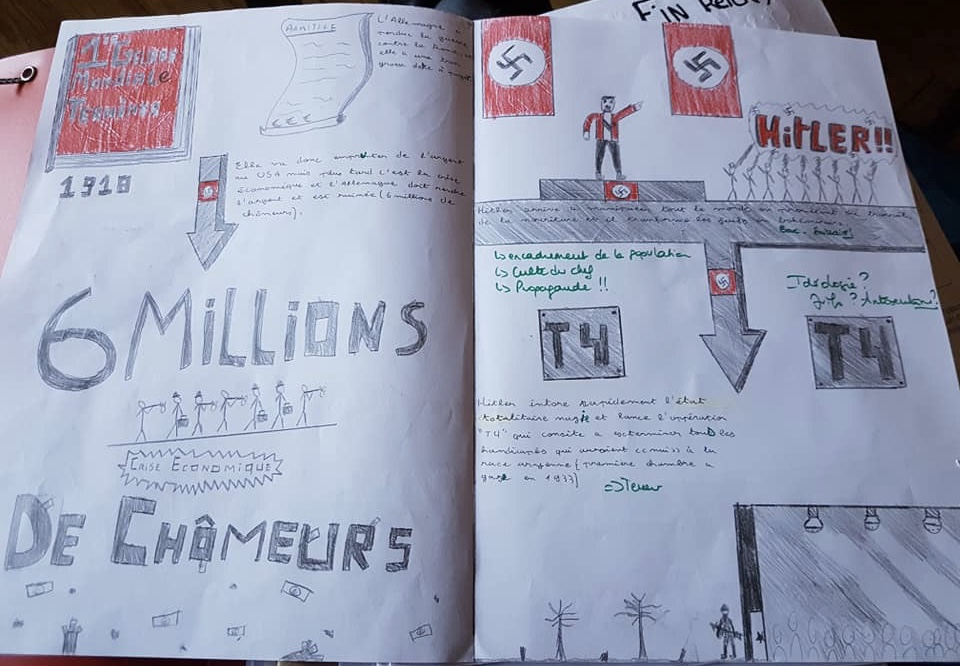 1ère Guerre
Mondiale
Terminée
1918
ARMITICE
L'Allemagne a
perdue la guerre
contre la
elle a une
grosse dette à
Elle va donc emprunter de l'argent
au USA mais plus tard c'est la crise
économique et l'Allemagne doit rendre
l'argent et est ruinée (6 millions de
chômeurs).
6 Millions
Crise Economique
De Chômeurs
FIN
HitLER!!
Hitler arrive a tout le monde en du travail
de la nourriture et il transforme les juifs en
Bac
↳ encadrement de la population
↳ Culte du chef
↳ Propagande !!
Idéologie?
Juifs? Antisémitisme?
T4
T4
Hitler rapidement l'état
totalitaire nazie et lance l'opération
"T4" qui consite a exterminer touts les
handicapés qui auraient a la
race aryenne (première chambre a
gaz en 1933)
=> Terreur